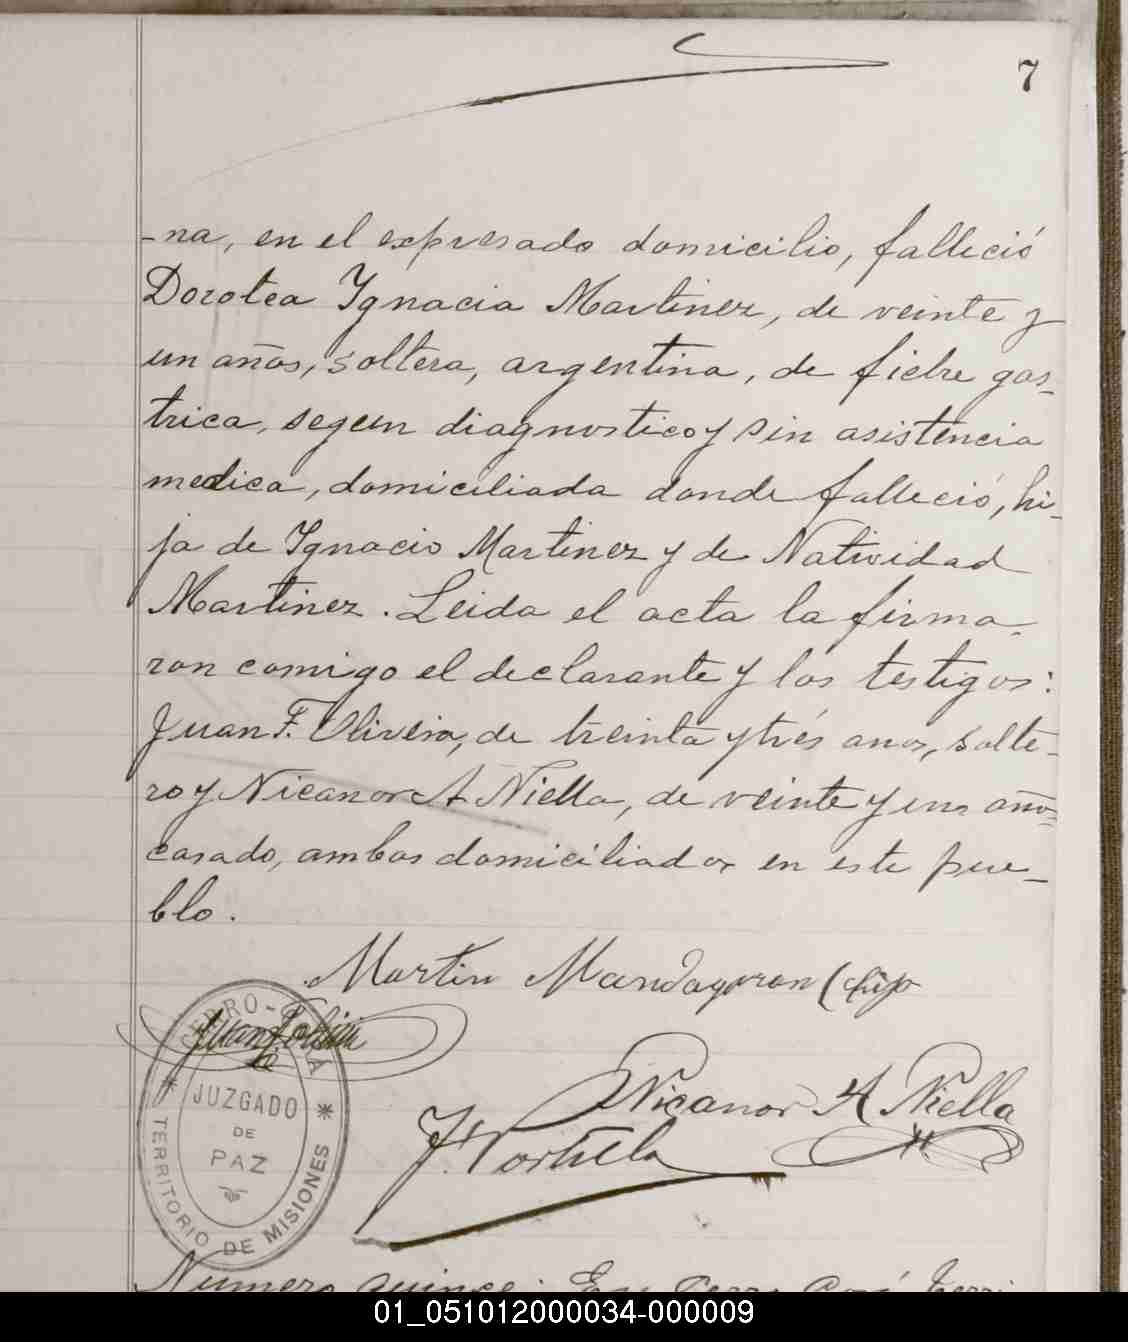 7
-na, en el expresado domicilio, falleció
Dorotea Ygnacia Martinez, de veinte y
un años, soltera, argentina, de fiebre gas-
trica, segun diagnostico y sin asistencia
medica, domiciliada donde falleció, hi-
ja de Ygnacio Martinez y de Natividad
Martinez. Leida el acta la firma-
ron comigo el declarante y los testigos:
Juan F. Olivera, de treinta y trés anos, solte-
ro y Nicanor A Niella, de veinte y uno año-
casado, ambos domiciliados en este pue-
blo.
Martin (hijo
CERRO-CORÁ
JUZGADO
DE
PAZ
TERRITORIO DE MISIONES
Nicanor A Niella
Numero quince: En Cerro Corá, Terri
01_051012000034-000009